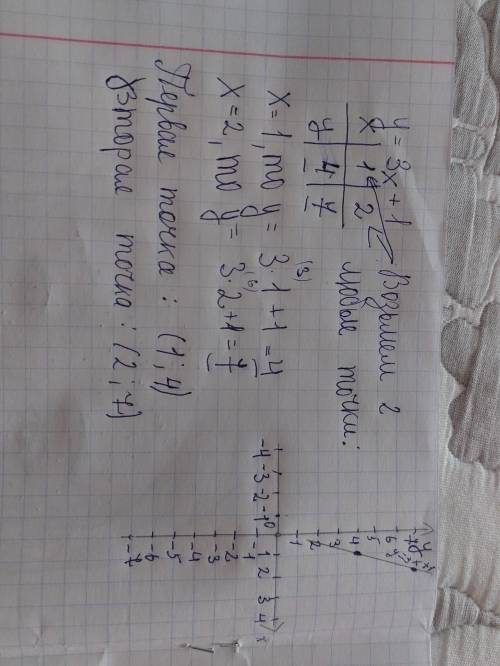 y = 3x + 1
Возьмем 2
x | 1 | 2
любые точки:
y | 4 | 7
(3)
x = 1, то y = 3·1 + 1 = 4
(6)
x = 2, то y = 3·2+1=7
Первая точка: (1; 4)
Вторая точка: (2; 7)
y
7
6
5
4
3
2
1
-4 -3 -2 -1 0 1 2 3 4 x
-1
-2
-3
-4
-5
-6
-7